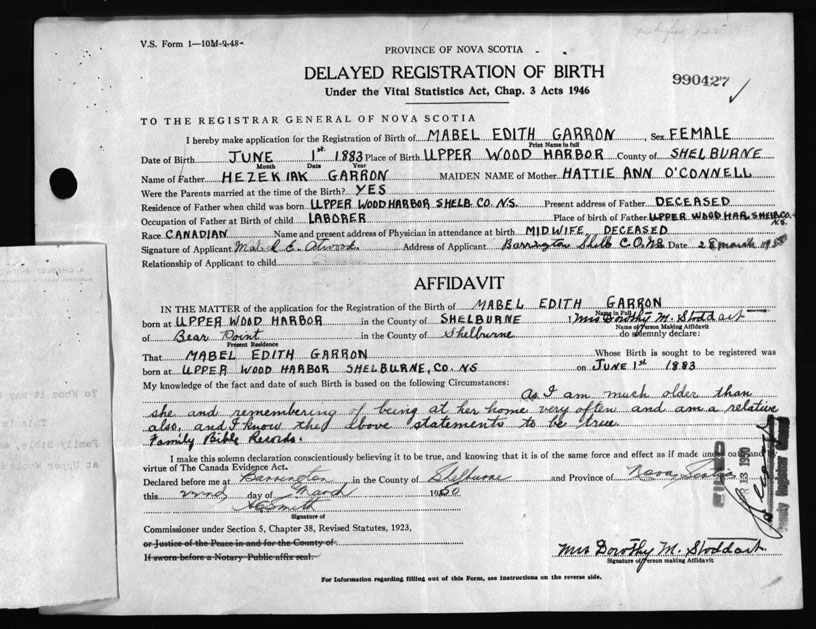 V.S. Form 1—10M-9-48-
PROVINCE OF NOVA SCOTIA
DELAYED REGISTRATION OF BIRTH
Under the Vital Statistics Act, Chap. 3 Acts 1946
990427
TO THE REGISTRAR GENERAL OF NOVA SCOTIA
I hereby make application for the Registration of Birth of MABEL EDITH GARRON, Sex FEMALE
Print Name in full
Date of Birth JUNE 1st 1883 Place of Birth UPPER WOOD HARBOR County of SHELBURNE
Month Date Year
Name of Father HEZEKIAK GARRON MAIDEN NAME of Mother HATTIE ANN O'CONNELL
Were the Parents married at the time of the Birth? YES
Residence of Father when child was born UPPER WOOD HARBOR SHELB. CO. N.S. Present address of Father DECEASED
Occupation of Father at Birth of child LABORER Place of birth of Father UPPER WOOD HAR. SHELB CO. N.S.
Race CANADIAN Name and present address of Physician in attendance at birth MIDWIFE, DECEASED
Signature of Applicant Mabel E. Atwood Address of Applicant Barrington Shelb CO. NS Date 28 March
Relationship of Applicant to child
AFFIDAVIT
IN THE MATTER of the application for the Registration of the Birth of MABEL EDITH GARRON
Name in Full
born at UPPER WOOD HARBOR in the County of SHELBURNE I Mrs Dorothy M. Stoddart
Name of Person Making Affidavit
of Bear Point in the County of Shelburne do solemnly declare:
Present Residence
That MABEL EDITH GARRON Whose Birth is sought to be registered was
born at UPPER WOOD HARBOR SHELBURNE, CO. NS on JUNE 1st 1883
My knowledge of the fact and date of such Birth is based on the following Circumstances:
As I am much older than
she and remembering of being at her home very often and am a relative
also, and I know the above statements to be true.
Family Bible Records.
I make this solemn declaration conscientiously believing it to be true, and knowing that it is of the same force and effect as if made under oath
virtue of The Canada Evidence Act.
Declared before me at Barrington in the County of Shelburne and Province of Nova Scotia
this 22nd day of March 1950
Signature of
Commissioner under Section 5, Chapter 38, Revised Statutes, 1923,
or Justice of the Peace in and for the County of
If sworn before a Notary Public affix seal.
Mrs Dorothy M. Stoddart
Signature of Person making Affidavit
For Information regarding filling out of this Form, see instructions on the reverse side.